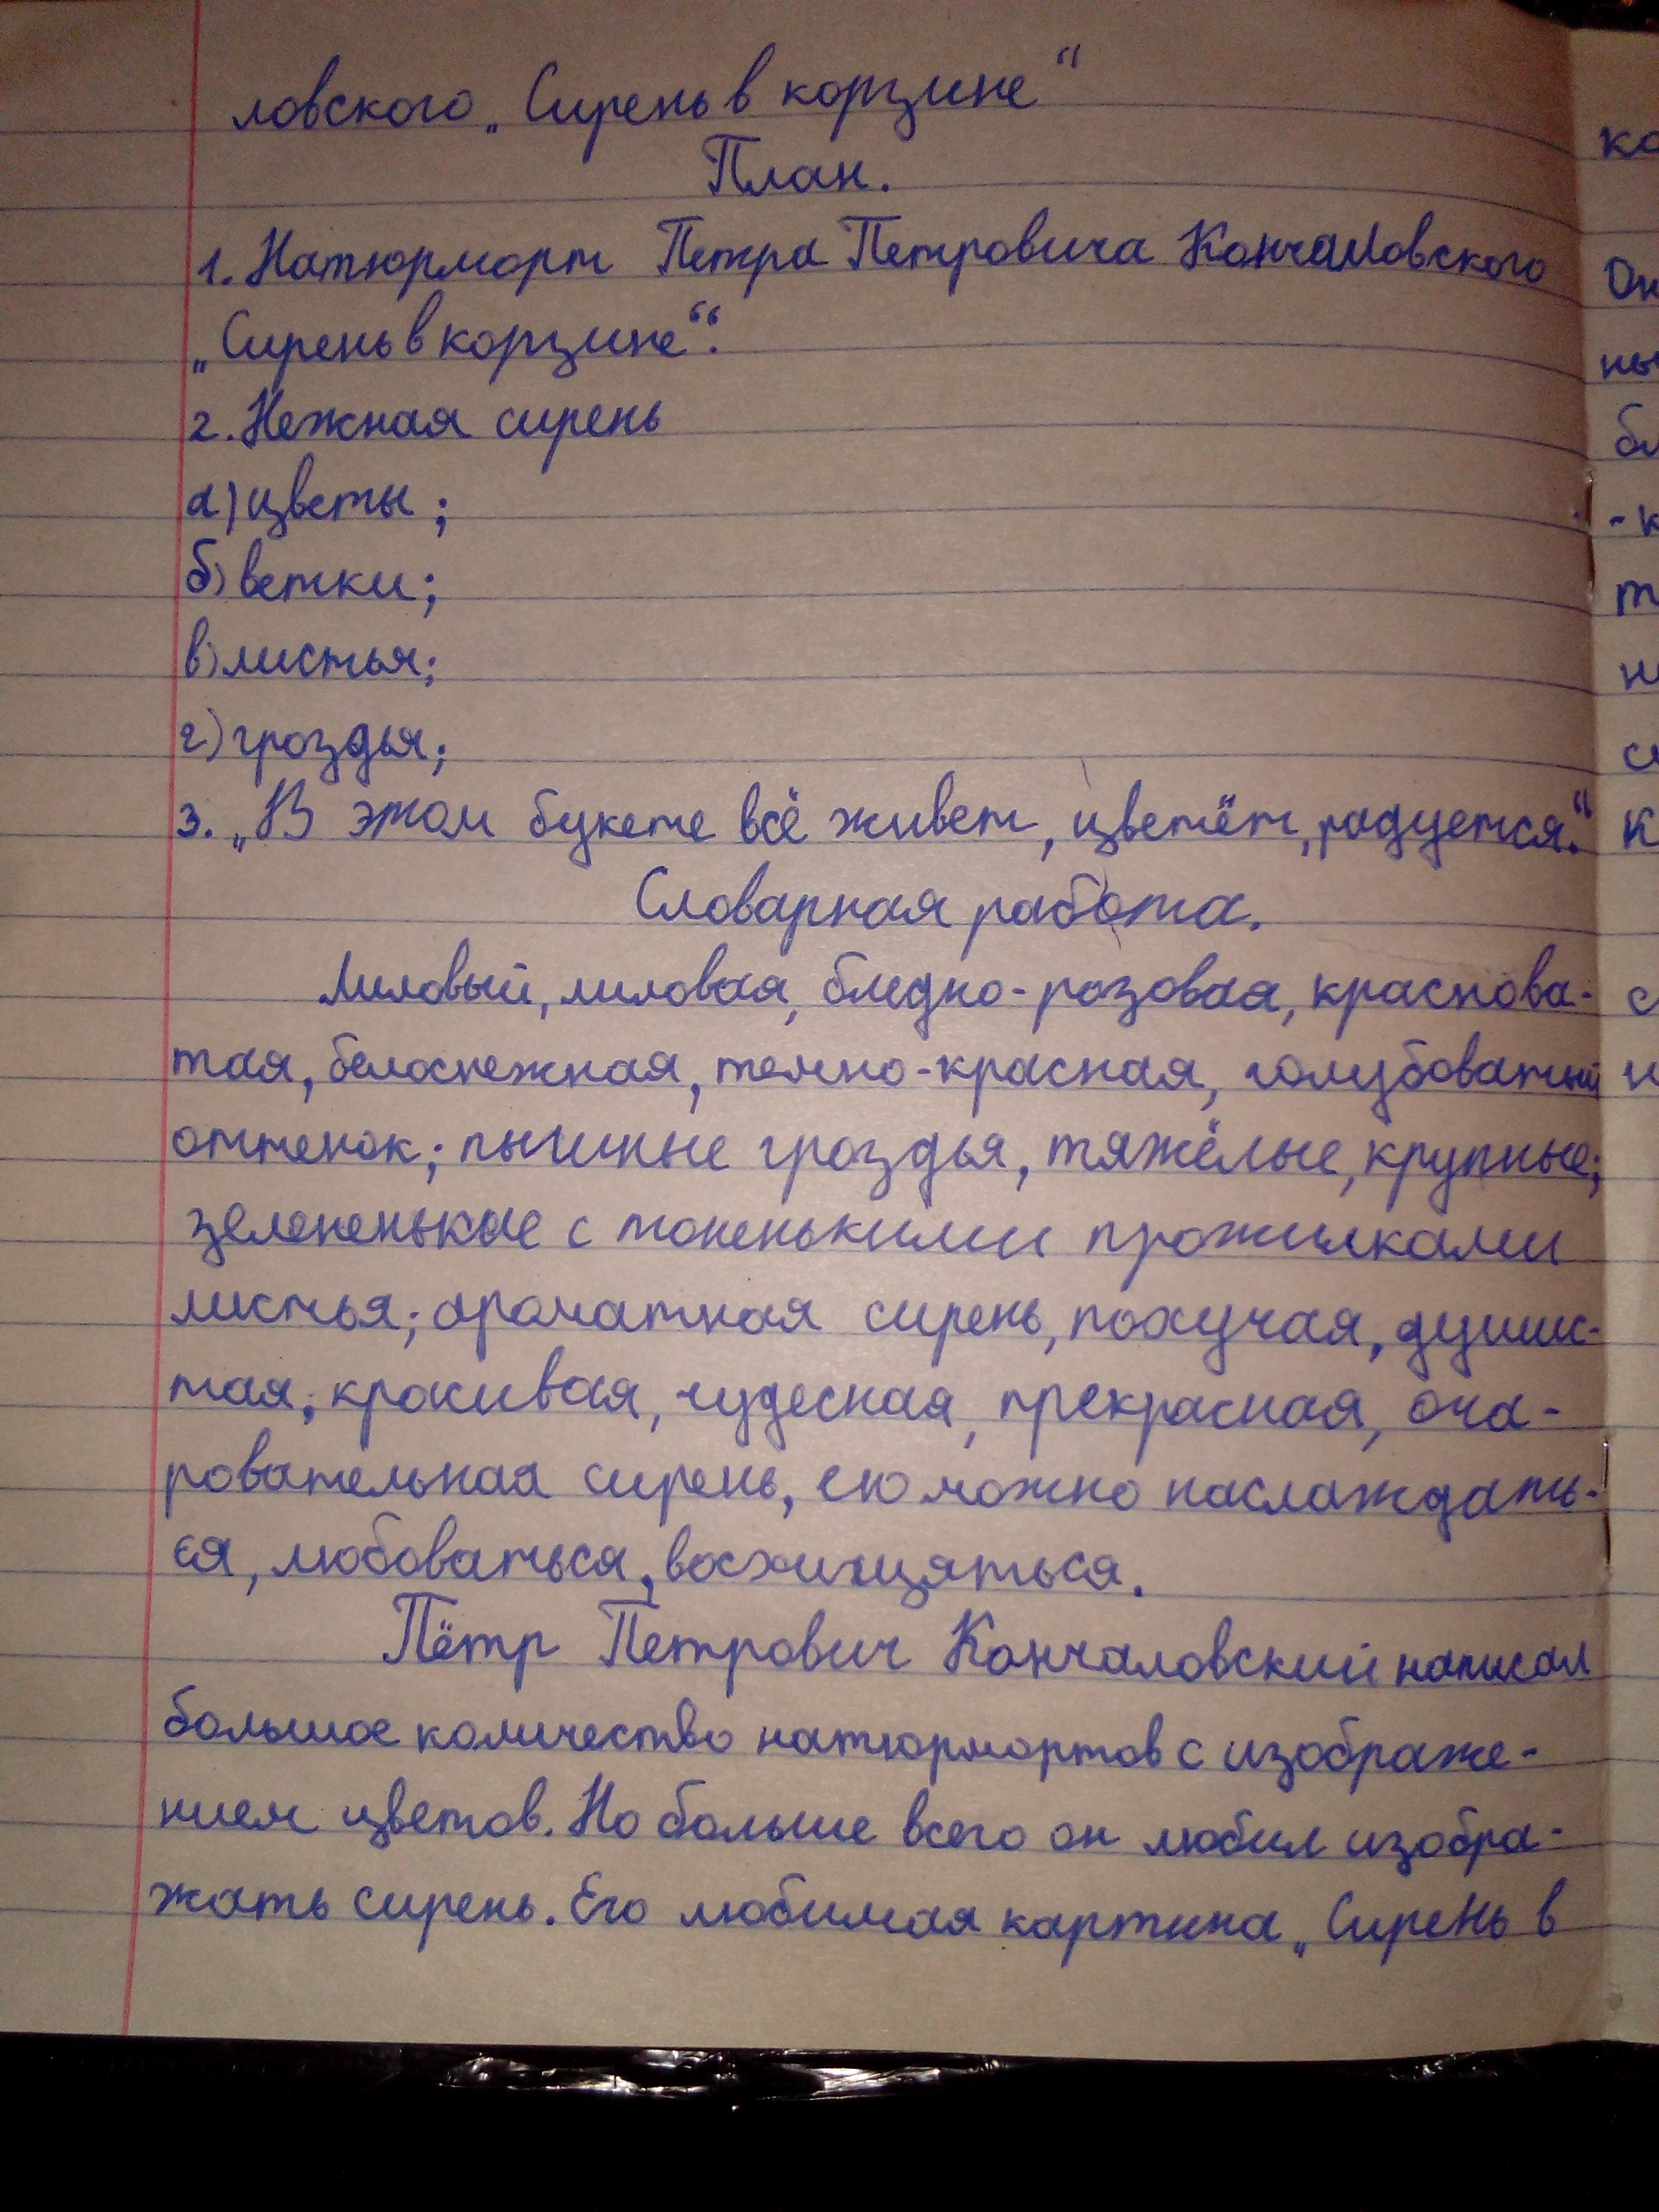 ловского „Сирень в корзине“
План.
1. Натюрморт Петра Петровича Кончаловского
„Сирень в корзине“.
2. Нежная сирень
а) цветы;
б) ветки;
в) листья;
г) гроздья;
3. „В этом букете всё живет, цветёт, радуется.“
Словарная работа.
Лиловый, лиловая, бледно-розовая, краснова-
тая, белоснежная, темно-красная, голубоватый
оттенок; пышные гроздья, тяжёлые, крупные;
зелененькие с тоненькими прожилками
листья; ароматная сирень, пахучая, душис-
тая; красивая, чудесная, прекрасная, оча-
ровательная сирень, ею можно наслаждать-
ся, любоваться, восхищяться.
Пётр Петрович Кончаловский написал
большое количество натюрмортов с изображе-
нием цветов. Но больше всего он любил изобра-
жать сирень. Его любимая картина „Сирень в